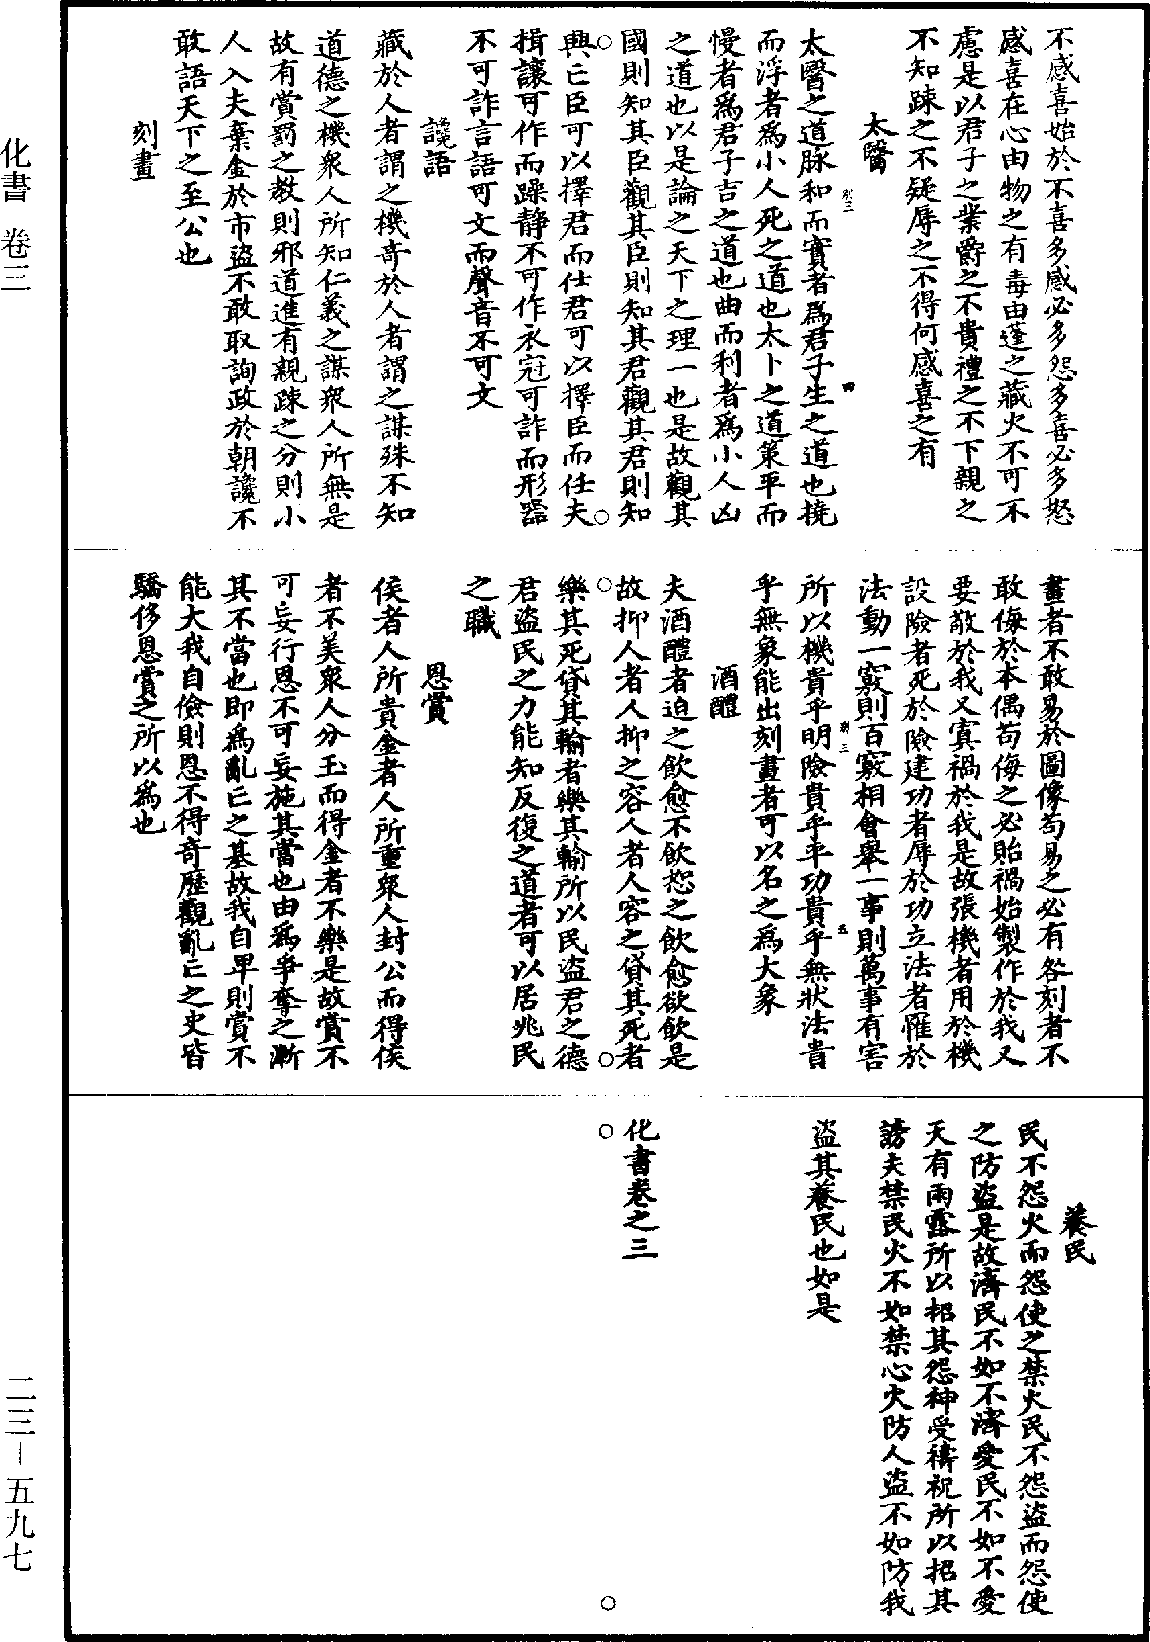 不感喜始於不喜多感必多怨多喜必多怒
感喜在心由物之有毒由蓬之藏火不可不
慮是以君子之業爵之不貴禮之不下親之
不知踈之不疑辱之不得何感喜之有
太醫
太醫之道脉和而實者爲君子生之道也撓
而浮者爲小人死之道也太卜之道策平而
慢者爲君子吉之道也曲而利者爲小人凶
之道也以是論之天下之理一也是故觀其
國則知其臣觀其臣則知其君觀其君則知
興亡臣可以擇君而仕君可以擇臣而任夫
揖讓可作而躁静不可作衣冠可詐而形器
不可詐言語可文而聲音不可文
讒語
藏於人者謂之機奇於人者謂之謀殊不知
道德之機衆人所知仁義之謀衆人所無是
故有賞罰之教則邪道進有親踈之分則小
人入夫棄金於市盜不敢取詢政於朝讒不
敢語天下之至公也
刻畫
畫者不敢易於圖像苟易之必有咎刻者不
敢侮於本偶苟侮之必貽禍始製作於我又
要敬於我又寘禍於我是故張機者用於機
設險者死於險建功者辱於功立法者罹於
法動一竅則百竅相會舉一事則萬事有害
所以機貴乎明險貴乎平功貴乎無狀法貴
乎無象能出刻畫者可以名之爲大象
酒醴
夫酒醴者迫之飲愈不飲恕之飲愈欲飲是
故抑人者人抑之容人者人容之貸其死者
樂其死貸其輸者樂其輸所以民盜君之德
君盜民之力能知反復之道者可以居兆民
之職
恩賞
侯者人所貴金者人所重衆人封公而得侯
者不美衆人分玉而得金者不樂是故賞不
可妄行恩不可妄施其當也由爲爭奪之漸
其不當也即爲亂亡之基故我自卑則賞不
能大我自儉則恩不得奇歷觀亂亡之史皆
驕侈恩賞之所以爲也
養民
民不怨火而怨使之禁火民不怨盜而怨使
之防盜是故濟民不如不濟愛民不如不愛
天有雨露所以招其怨神受禱祝所以招其
謗夫禁民火不如禁心火防人盜不如防我
盜其養民也如是
化書卷之三
化書 卷三
二三－五九七